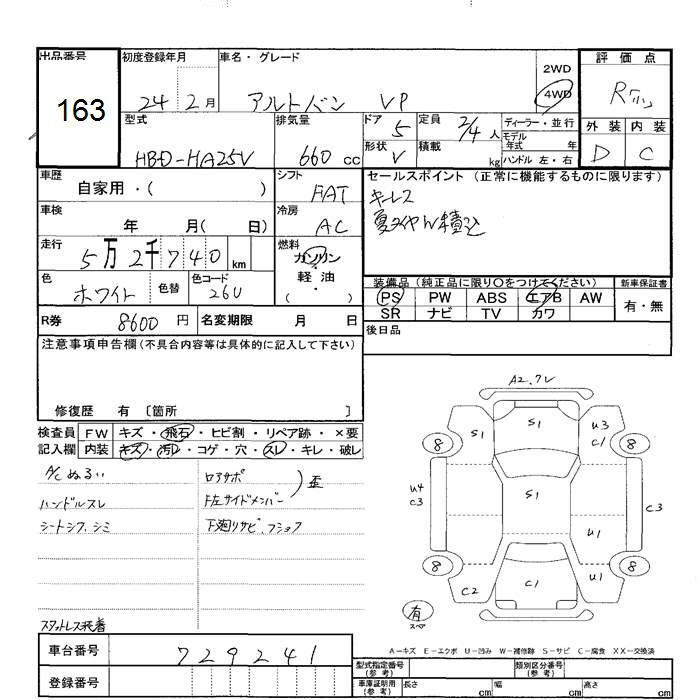 出品番号 初度登録年月 車名・グレード 評価点
163
24年2月 アルトバン VP 2WD 4WD
型式 排気量 ドア 定員 ディーラー・並行 外装 内装
HBD-HA25V 660cc 5 2/4人 モデル年式 年 D C
形状 V 積載 kg ハンドル 左・右
車歴 シフト セールスポイント (正常に機能するものに限ります)
自家用・( ) FAT キーレス
車検 冷房 夏タイヤ 積込
年 月( 日) AC
走行 燃料
5万2千740km ガソリン・軽油・( )
色 色替 色コード 装備品 (純正品に限り〇をつけてください) 新車保証書
ホワイト 26U PS PW ABS エアB AW 有・無
SR ナビ TV カワ
R券 8600円 名変期限 月 日 後日品
注意事項申告欄(不具合内容等は具体的に記入して下さい)
修復歴 有 〔箇所 〕
検査員 FW キズ・飛石・ヒビ割・リペア跡・×要
記入欄 内装 キズ・汚レ・コゲ・穴・スレ・キレ・破レ
A/Cぬるい ロアサポ
ハンドルスレ F左サイドメンバー )歪
シートシワ、シミ 下廻りサビ、フショク
スタットレス装着
A2.
S1
S1 U3
C1
8 8
U4
C3 S1 C3
U1
8 8
C2 C1 U1
有
スペア
A-キズ E-エクボ U-凹み W-補修跡 S-サビ C-腐食 XX-交換済
車台番号 729241
登録番号
型式指定番号(参考) 類別区分番号(参考)
車庫証明用(参考) 長さ cm 幅 cm 高さ cm